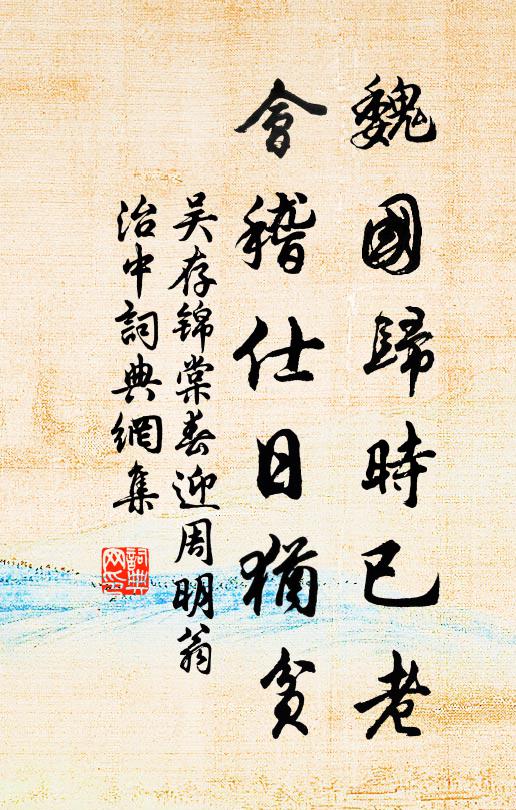 魏國歸時已老
會稽仕日猶貧
吴存錦棠春迎周明翁
治中詞典網集
詞典网印